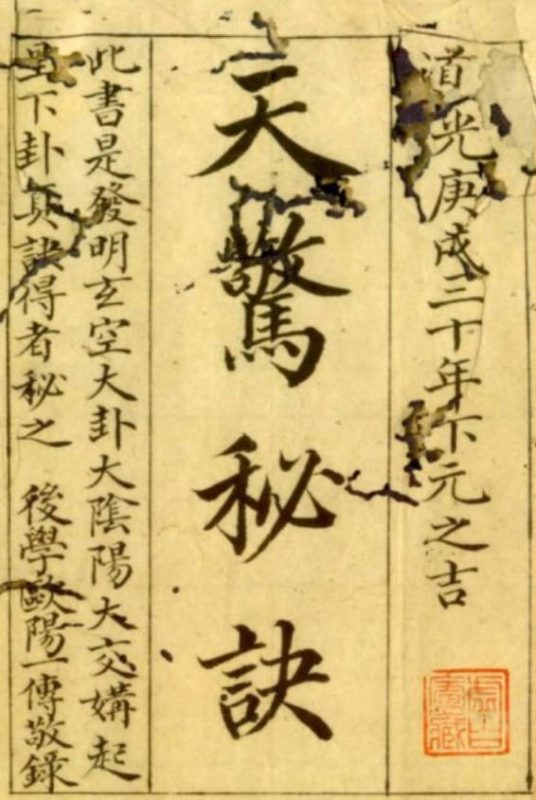 道光庚戌三十年下元之吉
天驚秘訣
此書是發明玄空大卦大陰陽大交媾起
星下卦真訣得者秘之 後學歐陽一傳敬錄